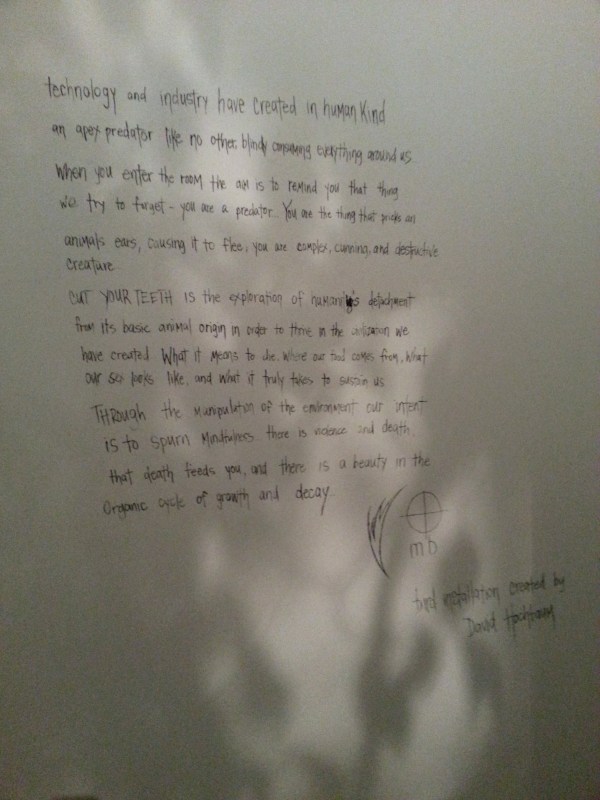 technology and industry have created in humankind
an apex predator like no other, blindly consuming everything around us
When you enter the room the aim is to remind you that thing
we try to forget - you are a predator. You are the thing that pricks an
animals ears, causing it to flee, you are complex, cunning, and destructive
creature
CUT YOUR TEETH is the exploration of humanity's detachment
from its basic animal origin in order to thrive in the civilization we
have created What it means to die. Where our food comes from, What
our sex looks like, and what it truly takes to sustain us
THROUGH the manipulation of the environment our intent
is to spurn Mindfulness there is violence and death.
that death feeds you, and there is a beauty in the
organic cycle of growth and decay
mb
installation created by
David Hochbaum